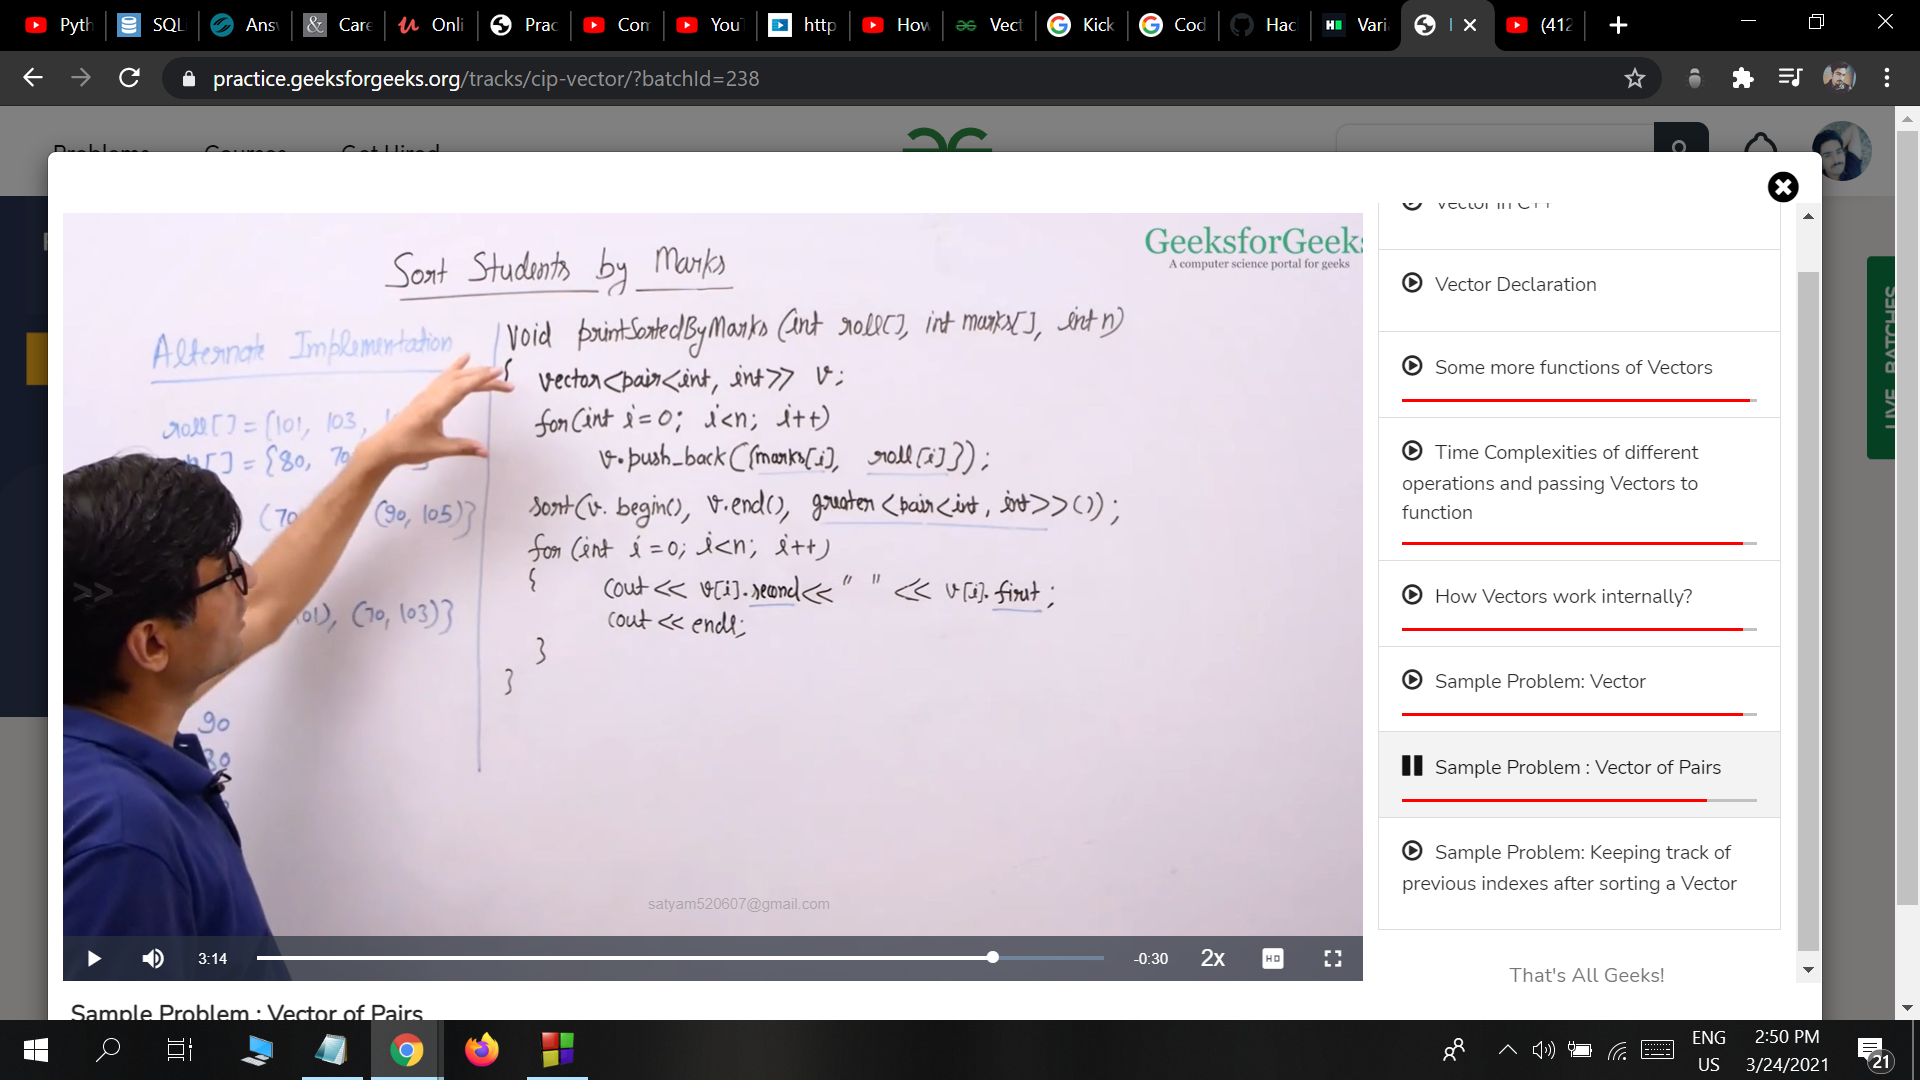 Pyth
SQL
Ans
Care
Onli
Prac
Com
You
http
How
Vect
Kick
Cod
Hac
Vari
(412
practice.geeksforgeeks.org/tracks/cip-vector/?batchId=238
Problems Courses Get Hired
LIVE BATCHES
GeeksforGeeks
A computer science portal for geeks
Sort Students by Marks
Alternate Implementation
roll[] = {101, 103,
[] = {80, 70
(70 (90, 105)}
101), (70, 103)}
90
80
void printSortedByMarks (int roll[], int marks[], int n)
{
vector<pair<int, int>> v;
for(int i=0; i<n; i++)
v.push_back({marks[i], roll[i]});
sort(v.begin(), v.end(), greater<pair<int, int>>());
for (int i=0; i<n; i++)
{ cout << v[i].second << " " << v[i].first;
cout << endl;
}
}
>>
satyam520607@gmail.com
3:14
-0:30
2x
HD
Sample Problem : Vector of Pairs
Vector in C++
Vector Declaration
Some more functions of Vectors
Time Complexities of different
operations and passing Vectors to
function
How Vectors work internally?
Sample Problem: Vector
Sample Problem : Vector of Pairs
Sample Problem: Keeping track of
previous indexes after sorting a Vector
That's All Geeks!
ENG
US
2:50 PM
3/24/2021
21